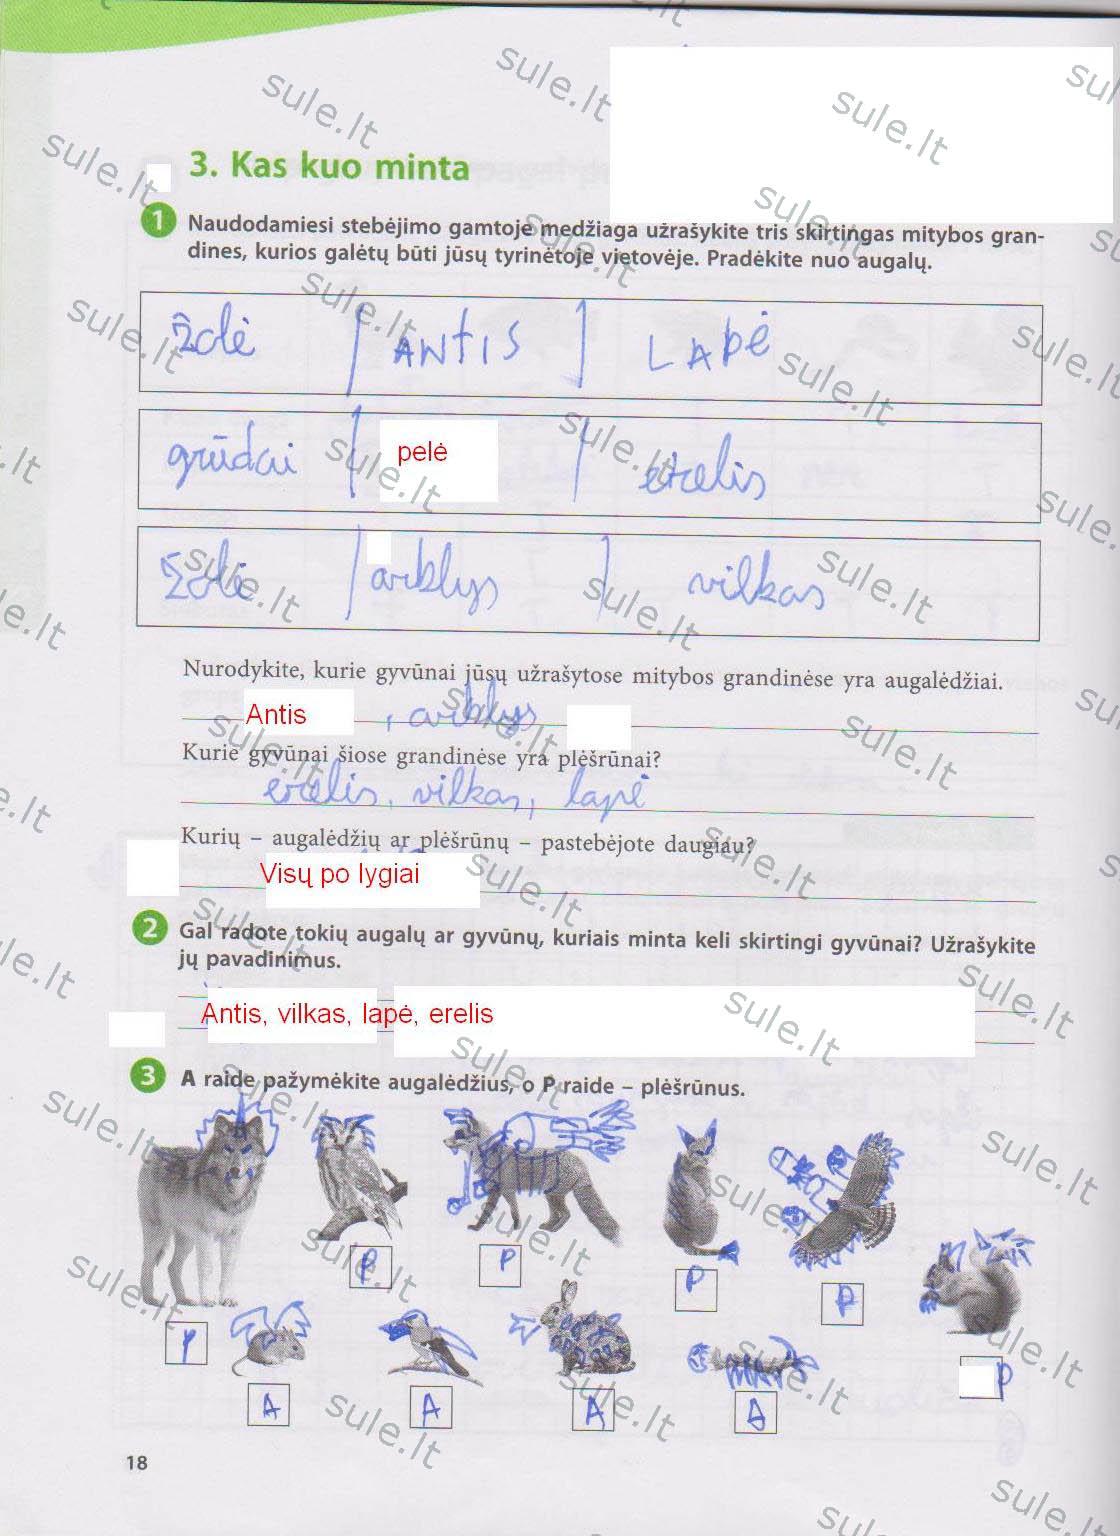 3. Kas kuo minta
1 Naudodamiesi stebėjimo gamtoje medžiaga užrašykite tris skirtingas mitybos gran-
dines, kurios galėtų būti jūsų tyrinėtoje vietovėje. Pradėkite nuo augalų.
žolė | ANTIS | LAPĖ
grūdai | pelė | erelis
žolė | arklys | vilkas
Nurodykite, kurie gyvūnai jūsų užrašytose mitybos grandinėse yra augalėdžiai.
Antis , arklys
Kurie gyvūnai šiose grandinėse yra plėšrūnai?
erelis, vilkas, lapė
Kurių – augalėdžių ar plėšrūnų – pastebėjote daugiau?
Visų po lygiai
2 Gal radote tokių augalų ar gyvūnų, kuriais minta keli skirtingi gyvūnai? Užrašykite
jų pavadinimus.
Antis, vilkas, lapė, erelis
3 A raide pažymėkite augalėdžius, o P raide – plėšrūnus.
P P P P
P P
A A A A
18
sule.lt